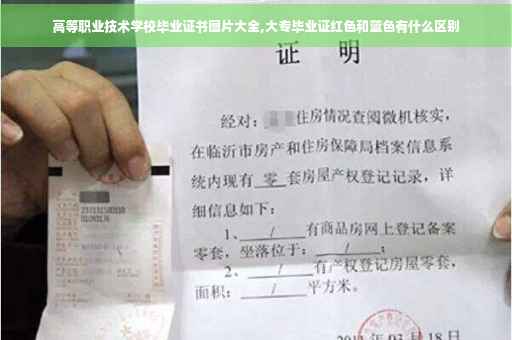 高等职业技术学校毕业证书图片大全,大专毕业证红色和蓝色有什么区别
证 明
经对: 住房情况查阅微机核实,
在临沂市房产和住房保障局档案信息系
统内现有 零 套房屋产权登记记录, 详
细信息如下:
1、 / 有商品房网上登记备案
零套, 坐落位于: / ;
2、 / 有产权登记房屋零套,
面积: / 平方米。